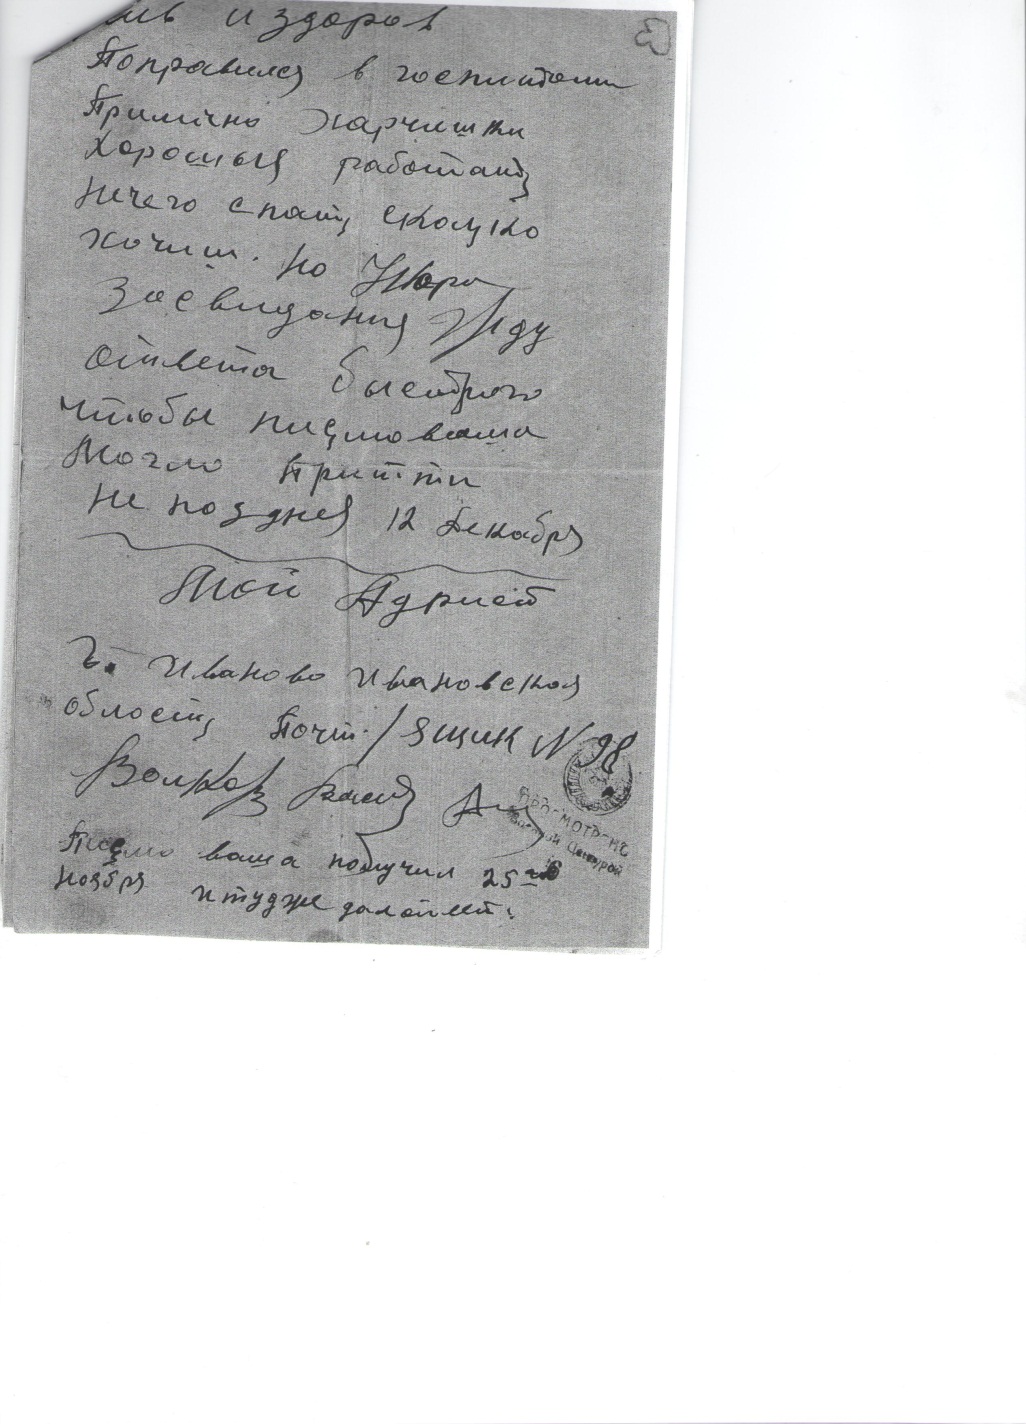 ив и здоров
Поправился в госпитали
Примічно харчишки
хорошыя работаиць
Ничего спать сколько
хочиш. Но Нюра
Зосвидания Жду
ответа быстрого
чтобы писмо ваша
Могло притти
Не позднея 12 Декабря
Мой Адрист
Г. Иваново Ивановская
область Почт./ящик N 98
Волков Васил
ПРОСМОТРЕНО
Военной Цензурой
Писмо ваша получил 25
Ноября итудже далответ.